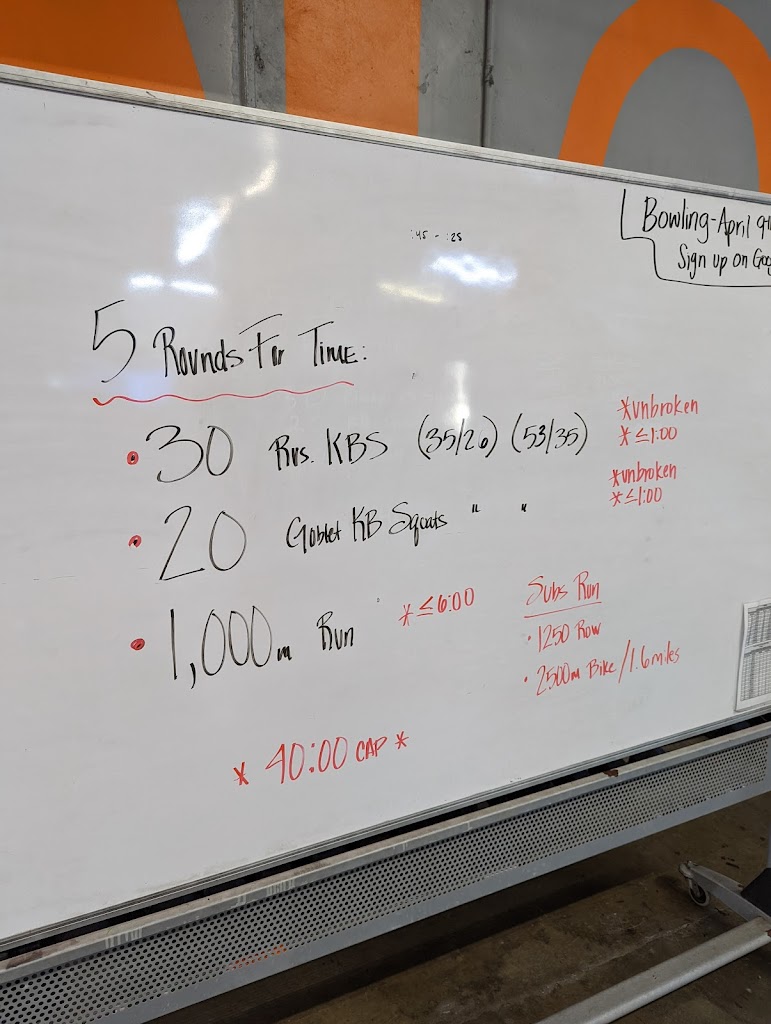 Bowling-April
Sign up on
:45 - :25
5 Rounds For Time:
• 30 Rus. KBS (35/26) (53/35)
*unbroken
* ≤1:00
• 20 Goblet KB Squats " "
*unbroken
* ≤1:00
• 1,000m Run
* ≤6:00
Subs Run
• 1250 Row
• 2500m Bike/1.6miles
* 40:00 CAP *